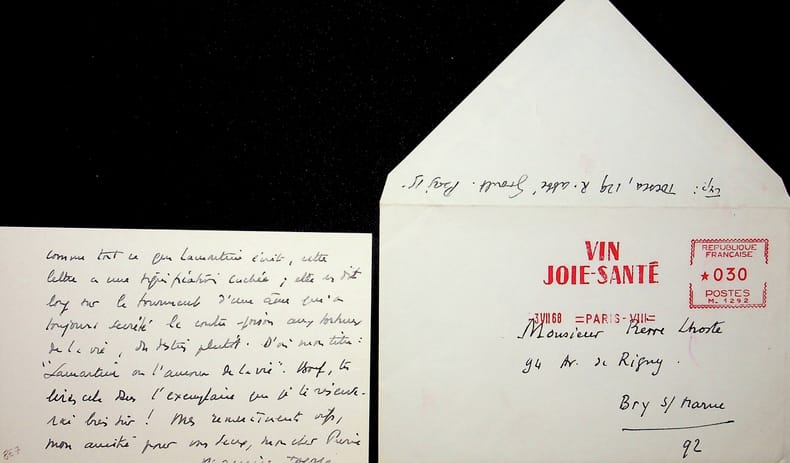 comme tout ce que Lamartine écrit, cette
lettre a une signification cachée ; elle en dit
long sur le tourment d'une âme qui a
toujours secrété le contre-poison aux tortures
de la vie, du destin plutôt. D'où mon titre :
"Lamartine ou l'amour de la vie". Bref, tu
liras cela dans l'exemplaire que je te réserve-
rai bien sûr ! Mes remerciements vifs,
mon amitié pour vous deux, mon cher Pierre
BE7
Exp: Toesca, 129 R. abbé Groult. Paris 15
VIN
JOIE-SANTÉ
REPUBLIQUE
FRANCAISE
★030
POSTES
M. 1292
3VII68 =PARIS-VIII=
Monsieur Pierre Lhoste
94 Av. de Rigny.
Bry s/Marne
92